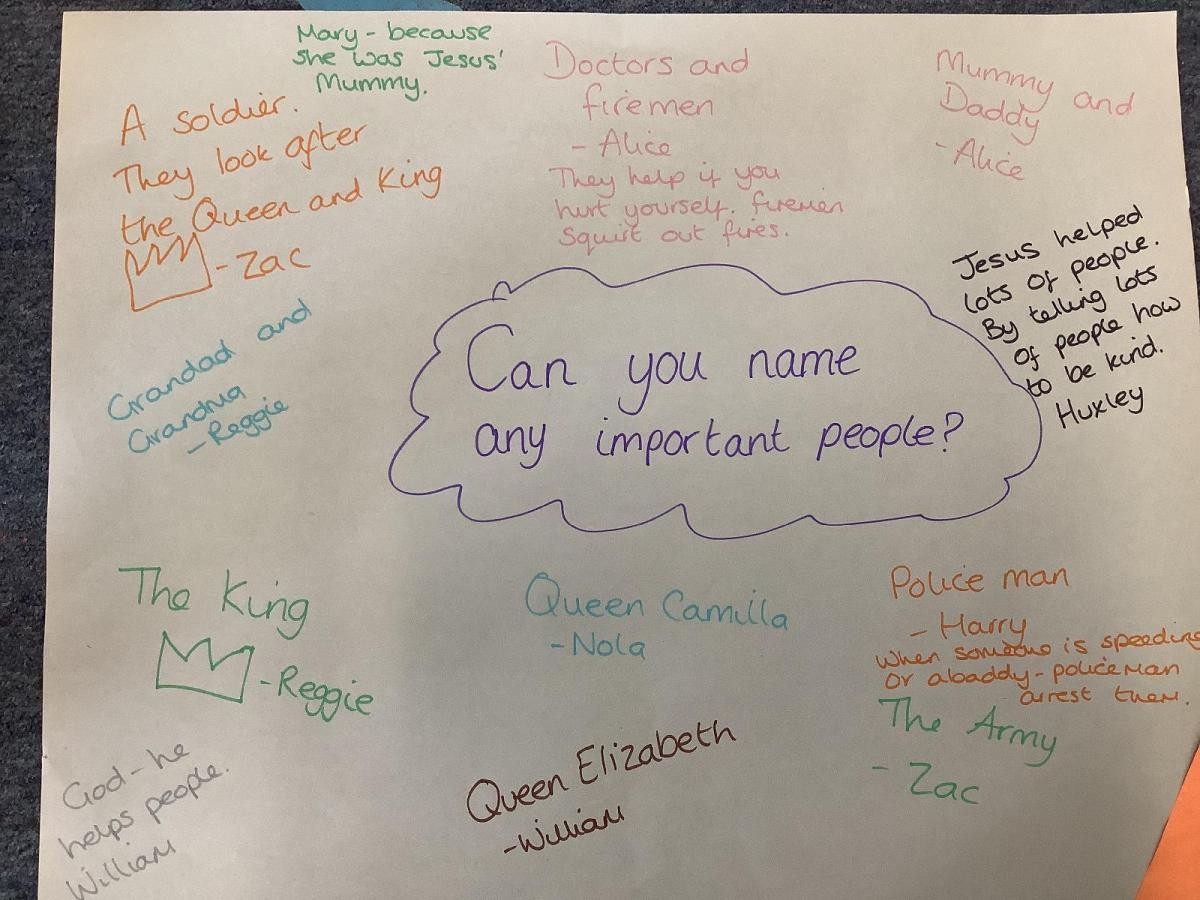 Mary - because
she was Jesus'
Mummy.
A soldier.
They look after
the Queen and King
- Zac
Doctors and
firemen
- Alice
They help if you
hurt yourself. firemen
squirt out fires.
Mummy and
Daddy
- Alice
Jesus helped
lots of people.
By telling lots
of people how
to be kind.
Huxley
Grandad and
Grandma
- Reggie
Can you name
any important people?
The King
- Reggie
Queen Camilla
- Nola
Police man
- Harry
when someone is speeding
or a baddy - policeman
arrest them.
The Army
- Zac
God - he
helps people.
William
Queen Elizabeth
- William